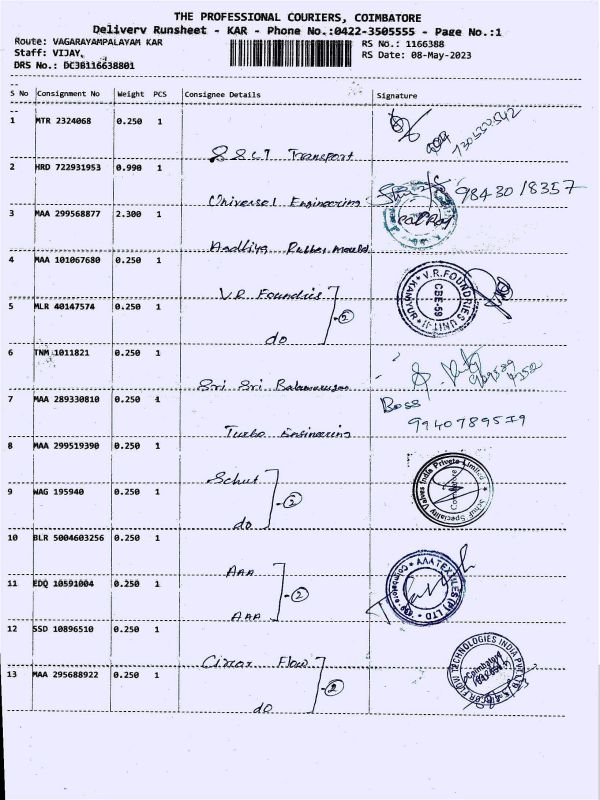 THE PROFESSIONAL COURIERS, COIMBATORE
Delivery Runsheet - KAR - Phone No.:0422-3505555 - Page No.:1
Route: VAGARAYAMPALAYAM KAR
RS No.: 1166388
Staff: VIJAY,
RS Date: 08-May-2023
DRS No.: DC3B116638801
S No Consignment No Weight PCS Consignee Details Signature
1 MTR 2324068 0.250 1
S S L T Transport
2 HRD 722931953 0.990 1
Universal Engineering 98430 18357
3 MAA 299568877 2.300 1
Aadhiya Rubber Mould
4 MAA 101067680 0.250 1
V.R. Foundries
V.R.FOUNDRIES UNIT-II KANIYUR
CBE-59
5 MLR 40147574 0.250 1
2
do
6 TNM 1011821 0.250 1
Sri Sri Balamurugan
7 MAA 289330810 0.250 1
Boss
9940789579
Turbo Engineering
8 MAA 299519390 0.250 1
Schuf
Schuf Speciality Valves India Private Limited
Coimbatore
9 WAG 195940 0.250 1
2
do
10 BLR 5004603256 0.250 1
AAA
AAA TEXTILES (P) LTD
11 EDQ 10591004 0.250 1
2
AAA
12 SSD 10896510 0.250 1
Circor Flow
CIRCOR FLOW TECHNOLOGIES INDIA PVT LTD
Coimbatore
13 MAA 295688922 0.250 1
2
do